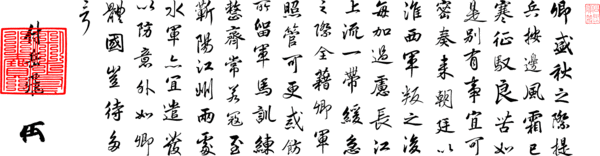 卿盛秋之際提
兵按邊風霜已
寒征馭良苦如
是別有事宜可
密奏來朝廷以
淮西軍叛之後
每加過慮長江
上流一帶緩急
之際全藉卿軍
照管可更戒飭
所留軍馬訓練
整齊常若寇至
蘄陽江州兩處
水軍亦宜遣發
以防意外如卿
體國豈待多
言
付岳飛